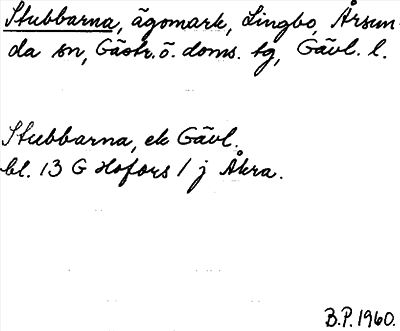 Stubbarna, ägomark, Lingbo, Årsun-
da sn, Gästr. ö. doms. tg, Gävl. l.
Stubbarna, ek Gävl.
bl. 13 G Hofors / j Åkra.
B.P. 1960.